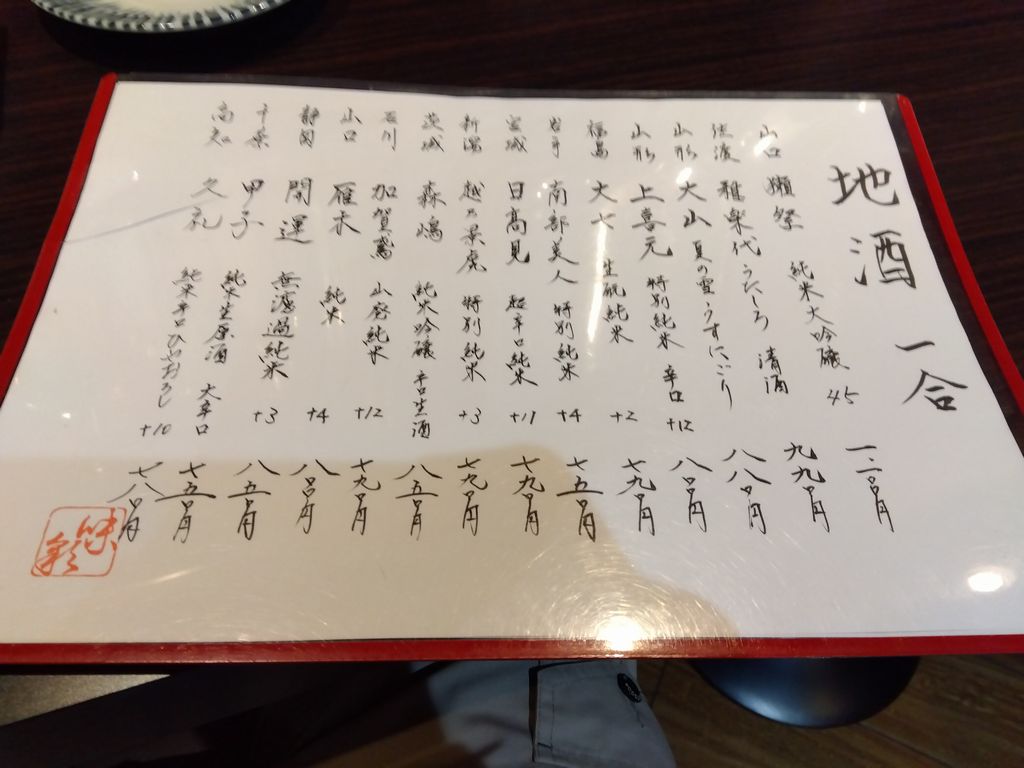 地酒 一合
山口 獺祭 純米大吟醸 45 一、二〇〇円
佐渡 雅楽代 うたしろ 清酒 九九〇円
山形 大山 夏の雪 うすにごり 八八〇円
山形 上喜元 特別純米 辛口 +12 八八〇円
福島 大七 生酛純米 +2 七九〇円
岩手 南部美人 特別純米 +4 七五〇円
宮城 日高見 超辛口純米 +11 七九〇円
新潟 越乃景虎 特別純米 +3 七九〇円
茨城 森嶋 純米吟醸 辛口生酒 八五〇円
石川 加賀鳶 山廃純米 +12 七九〇円
山口 雁木 純米 +4 八〇〇円
静岡 開運 無濾過純米 +3 八五〇円
千葉 甲子 純米生原酒 大辛口 七五〇円
高知 久礼 純米辛口ひやおろし +10 七八〇円
味彩